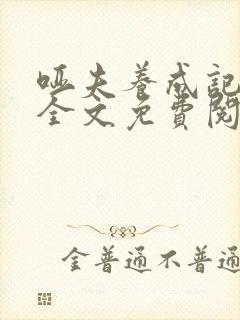 哑夫养成记
全文免費閱
金普通不普通